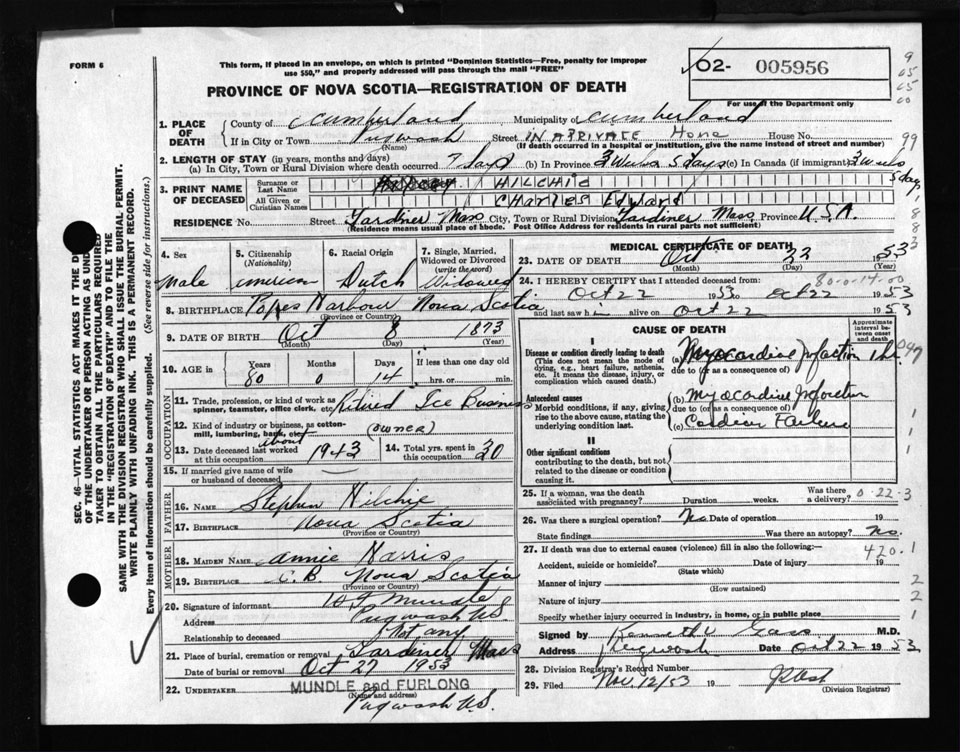 FORM 6
This form, if placed in an envelope, on which is printed "Dominion Statistics—Free, penalty for improper
use $50," and properly addressed will pass through the mail "FREE"
02- 005956
For use of the Department only
PROVINCE OF NOVA SCOTIA—REGISTRATION OF DEATH
1. PLACE OF DEATH
County of Cumberland Municipality of Cumberland
If in City or Town Pugwash Street IN A PRIVATE Home House No.
(Name) (If death occurred in a hospital or institution, give the name instead of street and number)
2. LENGTH OF STAY (in years, months and days)
(a) In City, Town or Rural Division where death occurred 7 days (b) In Province 3 Weeks 5 days (c) In Canada (if immigrant) 3 weeks
5 days
3. PRINT NAME OF DECEASED
Surname or Last Name HILCHIE
All Given or Christian Names CHARLES Edward
RESIDENCE No. Street Gardiner Mass City, Town or Rural Division Gardiner Mass Province U.S.A.
(Residence means usual place of abode. Post Office Address for residents in rural parts not sufficient)
4. Sex
Male
5. Citizenship
(Nationality)
American
6. Racial Origin
Dutch
7. Single, Married, Widowed or Divorced
(write the word)
Widowed
8. BIRTHPLACE Popes Harbour Nova Scotia
(Province or Country)
9. DATE OF BIRTH Oct 8 1873
(Month) (Day) (Year)
10. AGE in
Years 80 Months 0 Days 14 If less than one day old
hrs. or min.
OCCUPATION
11. Trade, profession or kind of work as
spinner, teamster, office clerk, etc. Retired Ice Business
12. Kind of industry or business, as cotton-
mill, lumbering, bank, etc. (OWNER)
13. Date deceased last worked
at this occupation about 1943
14. Total yrs. spent in
this occupation 30
15. If married give name of wife
or husband of deceased
FATHER
16. Name Stephen Hilchie
17. Birthplace Nova Scotia
(Province or Country)
MOTHER
18. MAIDEN NAME Annie Harris
19. Birthplace C.B. Nova Scotia
(Province or Country)
20. Signature of informant Mundle
Address Pugwash N.S.
Relationship to deceased Not any
21. Place of burial, cremation or removal Gardiner Mass
Date of burial or removal Oct 27 1953
22. UNDERTAKER MUNDLE and FURLONG
(Name and address)
Pugwash N.S.
MEDICAL CERTIFICATE OF DEATH
23. DATE OF DEATH Oct 22 1953
(Month) (Day) (Year)
80-0-14-00
24. I HEREBY CERTIFY that I attended deceased from:
Oct 22 1953 to Oct 22 1953
and last saw h alive on Oct 22 1953
CAUSE OF DEATH
Approximate interval between onset and death
I
Disease or condition directly leading to death
(This does not mean the mode of dying, e.g., heart failure, asthenia, etc. It means the disease, injury, or complication which caused death.)
(a) Myocardial Infarction 1 hr
due to (or as a consequence of)
Antecedent causes
Morbid conditions, if any, giving rise to the above cause, stating the underlying condition last.
(b) Myocardial Infarction
due to (or as a consequence of)
(c) Cardiac Failure
II
Other significant conditions
contributing to the death, but not related to the disease or condition causing it.
25. If a woman, was the death
associated with pregnancy? Duration weeks. Was there a delivery?
0-22-3
26. Was there surgical operation? No Date of operation 19
State findings Was there an autopsy? No.
27. If death was due to external causes (violence) fill in also the following:—
420.1
Accident, suicide or homicide? Date of injury 19
(State which)
Manner of injury
(How sustained)
Nature of injury
Specify whether injury occurred in industry, in home, or in public place
Signed by Kenneth M.D.
Address Pugwash Date Oct 22 1953
28. Division Registrar's Record Number
29. Filed Nov. 12/53 19
(Division Registrar)
SEC. 46—VITAL STATISTICS ACT MAKES IT THE
OF THE UNDERTAKER OR PERSON ACTING AS
TAKER TO OBTAIN ALL THE PARTICULARS REQUIRED
IN THE "REGISTRATION OF DEATH" AND TO FILE THE
SAME WITH THE DIVISION REGISTRAR WHO SHALL ISSUE THE BURIAL PERMIT.
WRITE PLAINLY WITH UNFADING INK. THIS IS A PERMANENT RECORD.
Every item of information should be carefully supplied. (See reverse side for instructions.)